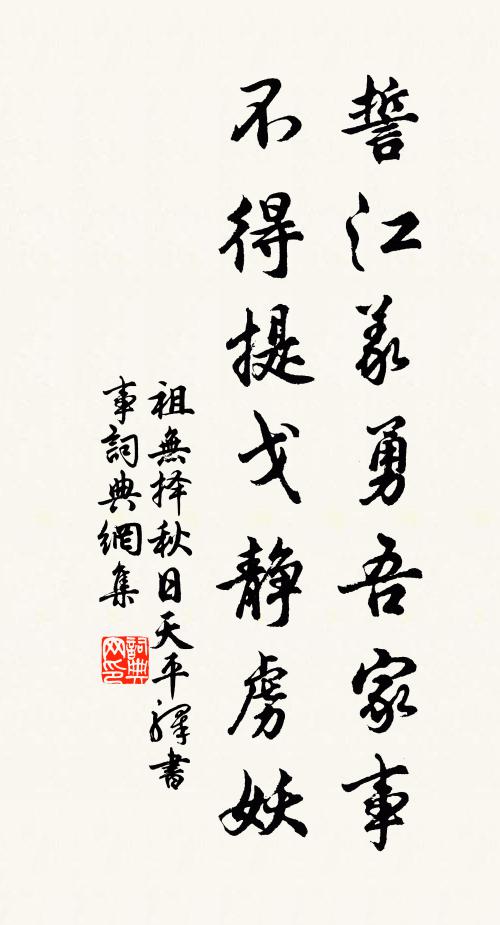 誓江義勇吾家事
不得提戈静虜妖
祖無择秋日天平驛書
事詞典網集
詞典網印